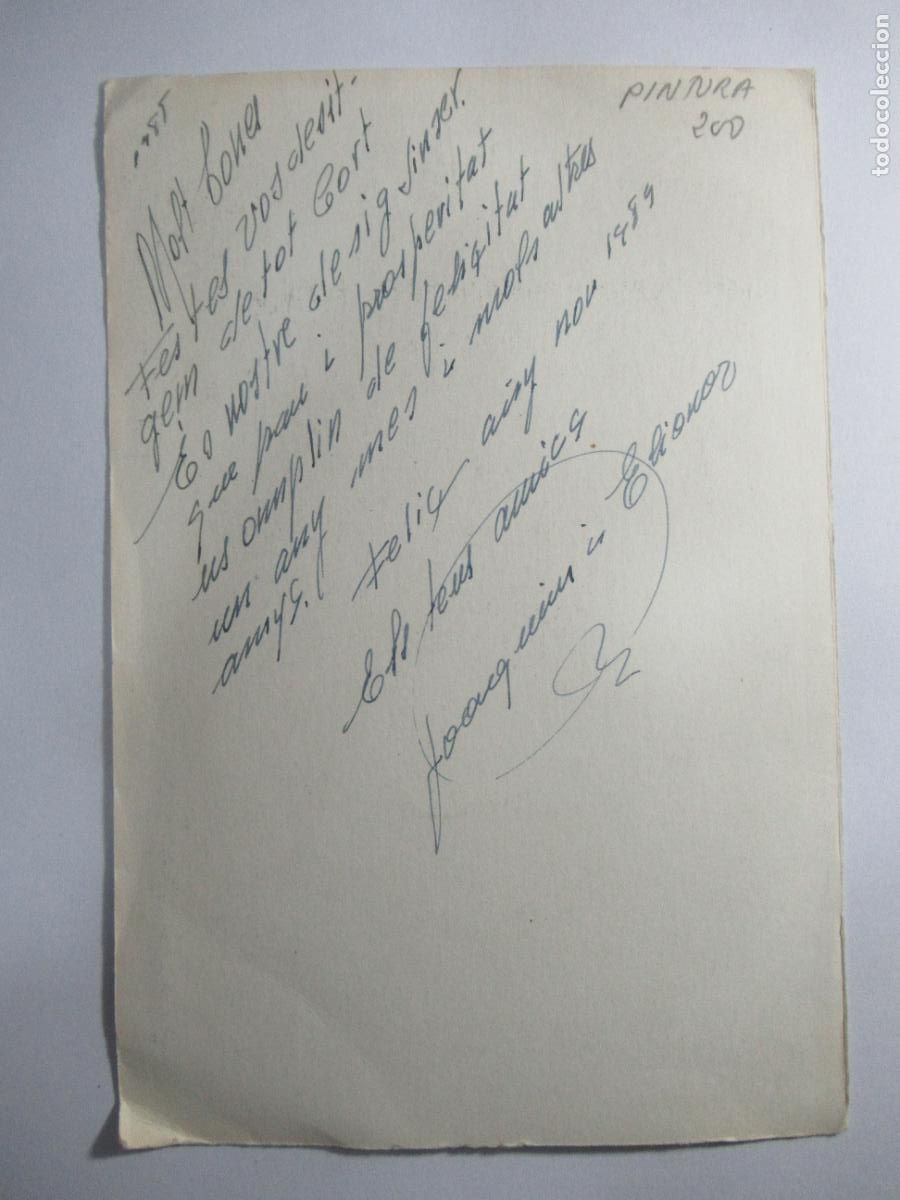 PINTURA
200
Molt bones
Festes vos desit-
gem de tot Cort
És nostre desig sinser
que pau i prosperitat
us omplin de felicitat
un any mes i mols astres
anys. Feliç any nou 1989
Els teus amics
Joaquim i Elionor
todocoleccion